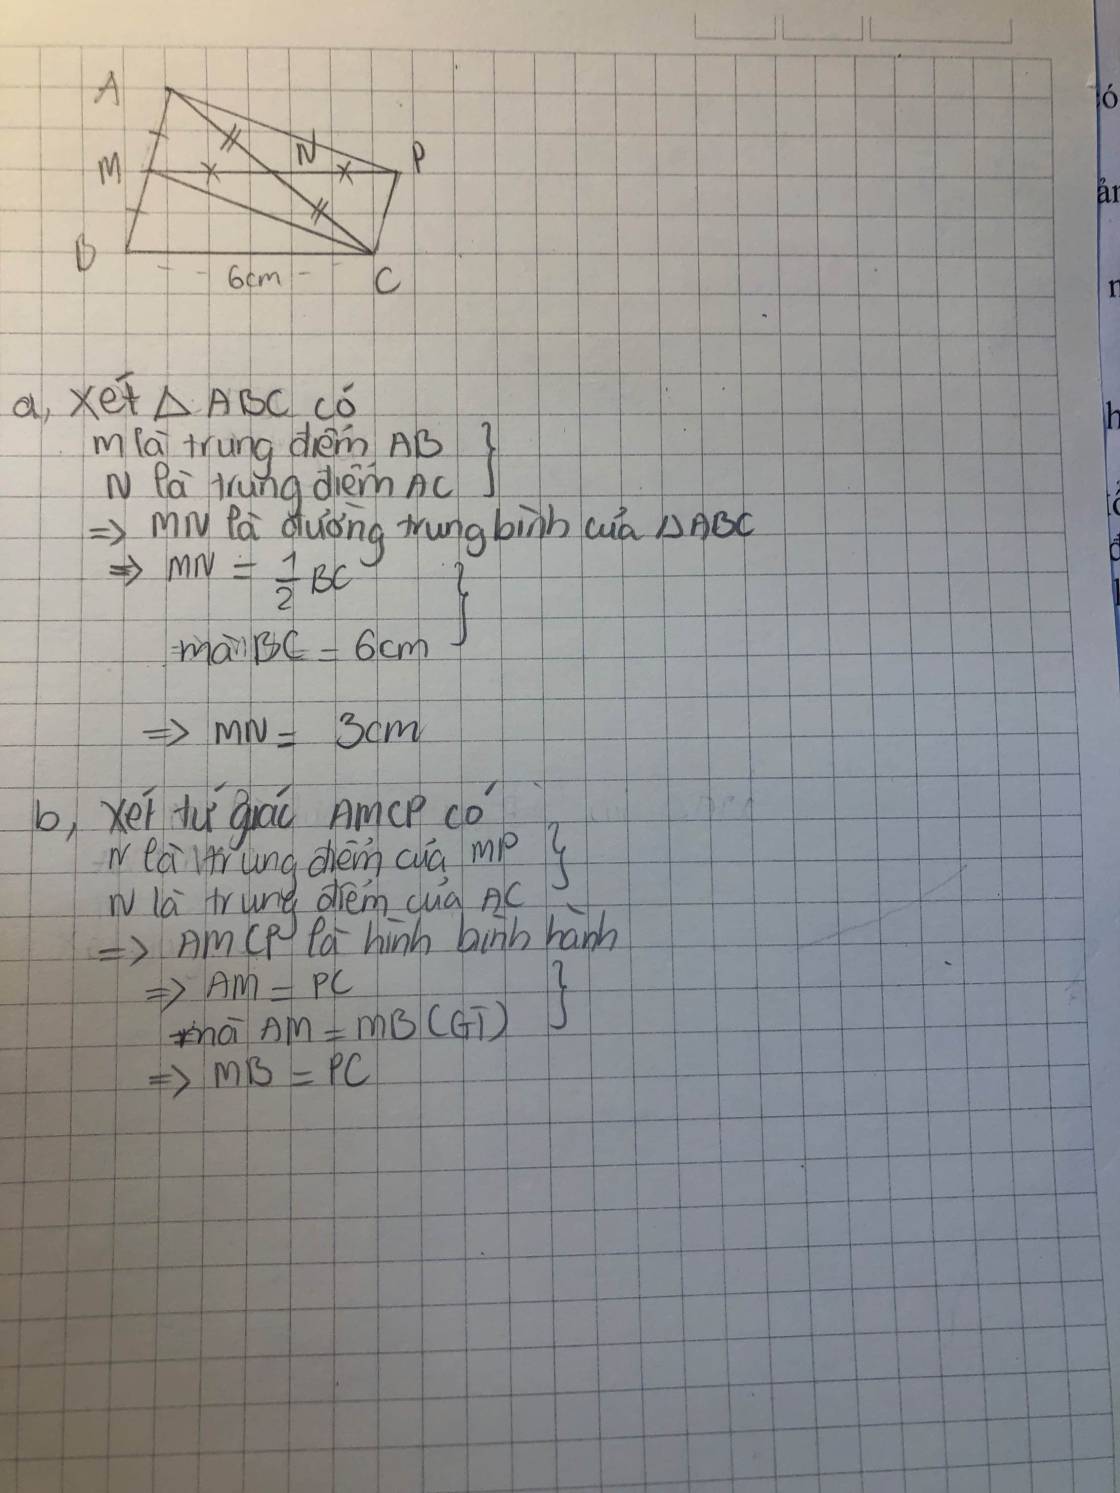 A
N
P
M
B
6cm
C
a, Xét △ ABC có
M là trung điểm AB }
N là trung điểm AC
=> MN là đường trung bình của △ABC
=> MN = 1/2 BC }
mà BC = 6cm
=> MN = 3cm
b, Xét tứ giác AMCP có
N là trung điểm của MP }
N là trung điểm của AC
=> AMCP là hình bình hành
=> AM = PC }
mà AM = MB (GT)
=> MB = PC